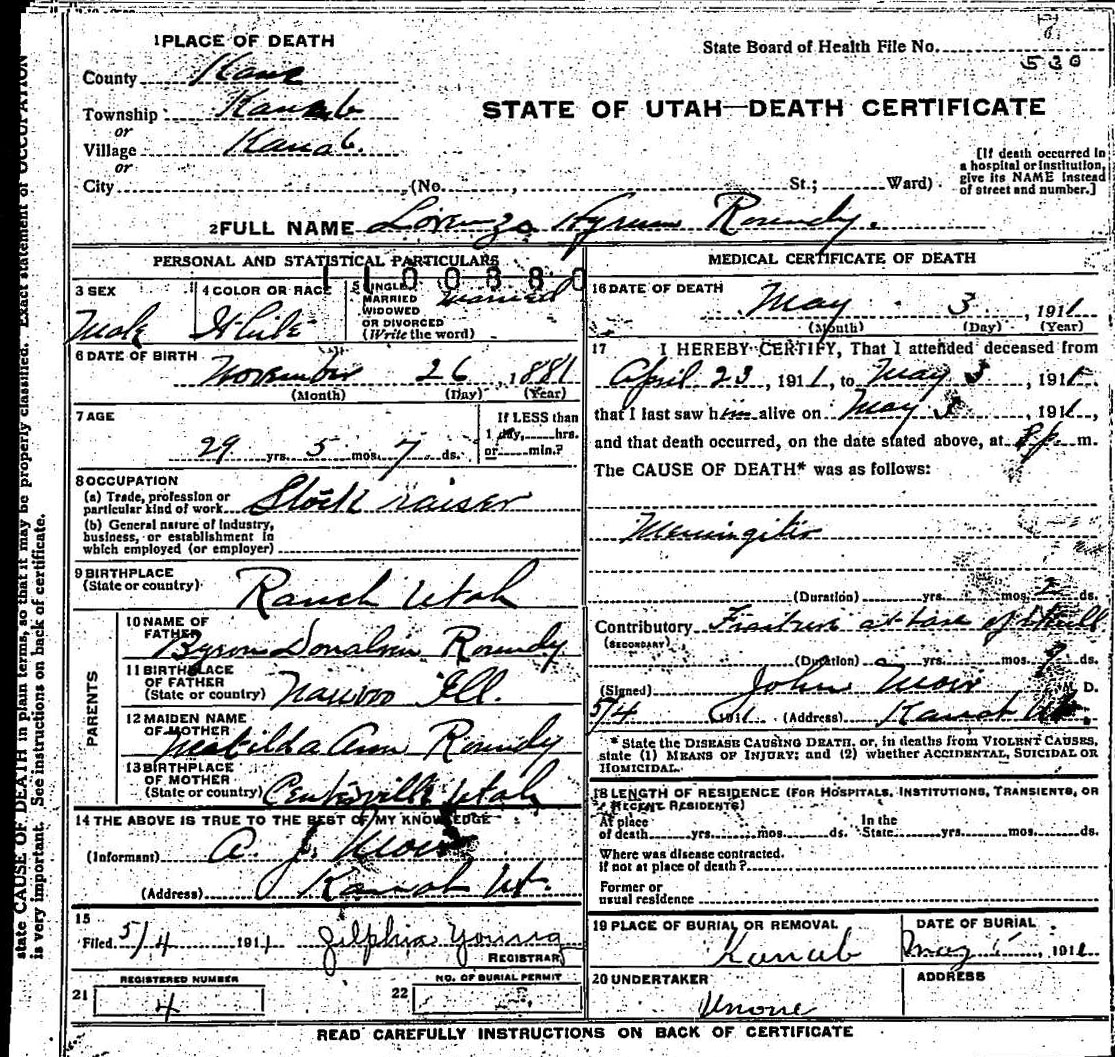 1 PLACE OF DEATH
State Board of Health File No.
530
County Kane
Township Kanab
or
Village Kanab.
or
City (No. , St.; Ward)
STATE OF UTAH—DEATH CERTIFICATE
[If death occurred in
a hospital or institution,
give its NAME instead
of street and number.]
2 FULL NAME Lorenzo Hyrum Roundy.
PERSONAL AND STATISTICAL PARTICULARS
1100380
3 SEX
Male
4 COLOR OR RACE
White
5 SINGLE
MARRIED
WIDOWED
OR DIVORCED
(Write the word)
married
6 DATE OF BIRTH
November 26, 1881
(Month) (Day) (Year)
7 AGE
29 yrs. 5 mos. 7 ds.
If LESS than
1 day, hrs.
or min.?
8 OCCUPATION
(a) Trade, profession or
particular kind of work Stock raiser
(b) General nature of industry,
business, or establishment in
which employed (or employer)
9 BIRTHPLACE
(State or country)
Ranch Utah
PARENTS
10 NAME OF
FATHER
Byron Donalvin Roundy
11 BIRTHPLACE
OF FATHER
(State or country) Nauvoo Ill.
12 MAIDEN NAME
OF MOTHER
Matilda Ann Roundy
13 BIRTHPLACE
OF MOTHER
(State or country) Centerville Utah
14 THE ABOVE IS TRUE TO THE BEST OF MY KNOWLEDGE
(Informant) A J. Moir
(Address) Kanab Ut.
15
Filed 5/4 1911 Zilphia Young
REGISTRAR
REGISTERED NUMBER
21 4
NO. OF BURIAL PERMIT
22
MEDICAL CERTIFICATE OF DEATH
16 DATE OF DEATH
May 3, 1911
(Month) (Day) (Year)
17 I HEREBY CERTIFY, That I attended deceased from
April 23, 1911, to May 3, 1911
that I last saw him alive on May 3, 1911,
and that death occurred, on the date stated above, at m.
The CAUSE OF DEATH* was as follows:
Meningitis
(Duration) yrs. mos. 2 ds.
Contributory Fracture at base of skull
(SECONDARY)
(Duration) yrs. mos. 9 ds.
(Signed) John Moir M. D.
5/4 1911 (Address) Kanab Ut.
* State the DISEASE CAUSING DEATH, or, in deaths from VIOLENT CAUSES,
state (1) MEANS OF INJURY; and (2) whether ACCIDENTAL, SUICIDAL OR
HOMICIDAL.
18 LENGTH OF RESIDENCE (FOR HOSPITALS, INSTITUTIONS, TRANSIENTS, OR
RECENT RESIDENTS)
At place
of death yrs. mos. ds.
In the
State yrs. mos. ds.
Where was disease contracted.
if not at place of death?
Former or
usual residence
19 PLACE OF BURIAL OR REMOVAL
Kanab
DATE OF BURIAL
May 1911
20 UNDERTAKER
ADDRESS
READ CAREFULLY INSTRUCTIONS ON BACK OF CERTIFICATE
state CAUSE OF DEATH in plain terms, so that it may be properly classified. Exact statement of OCCUPATION
is very important. See instructions on back of certificate.